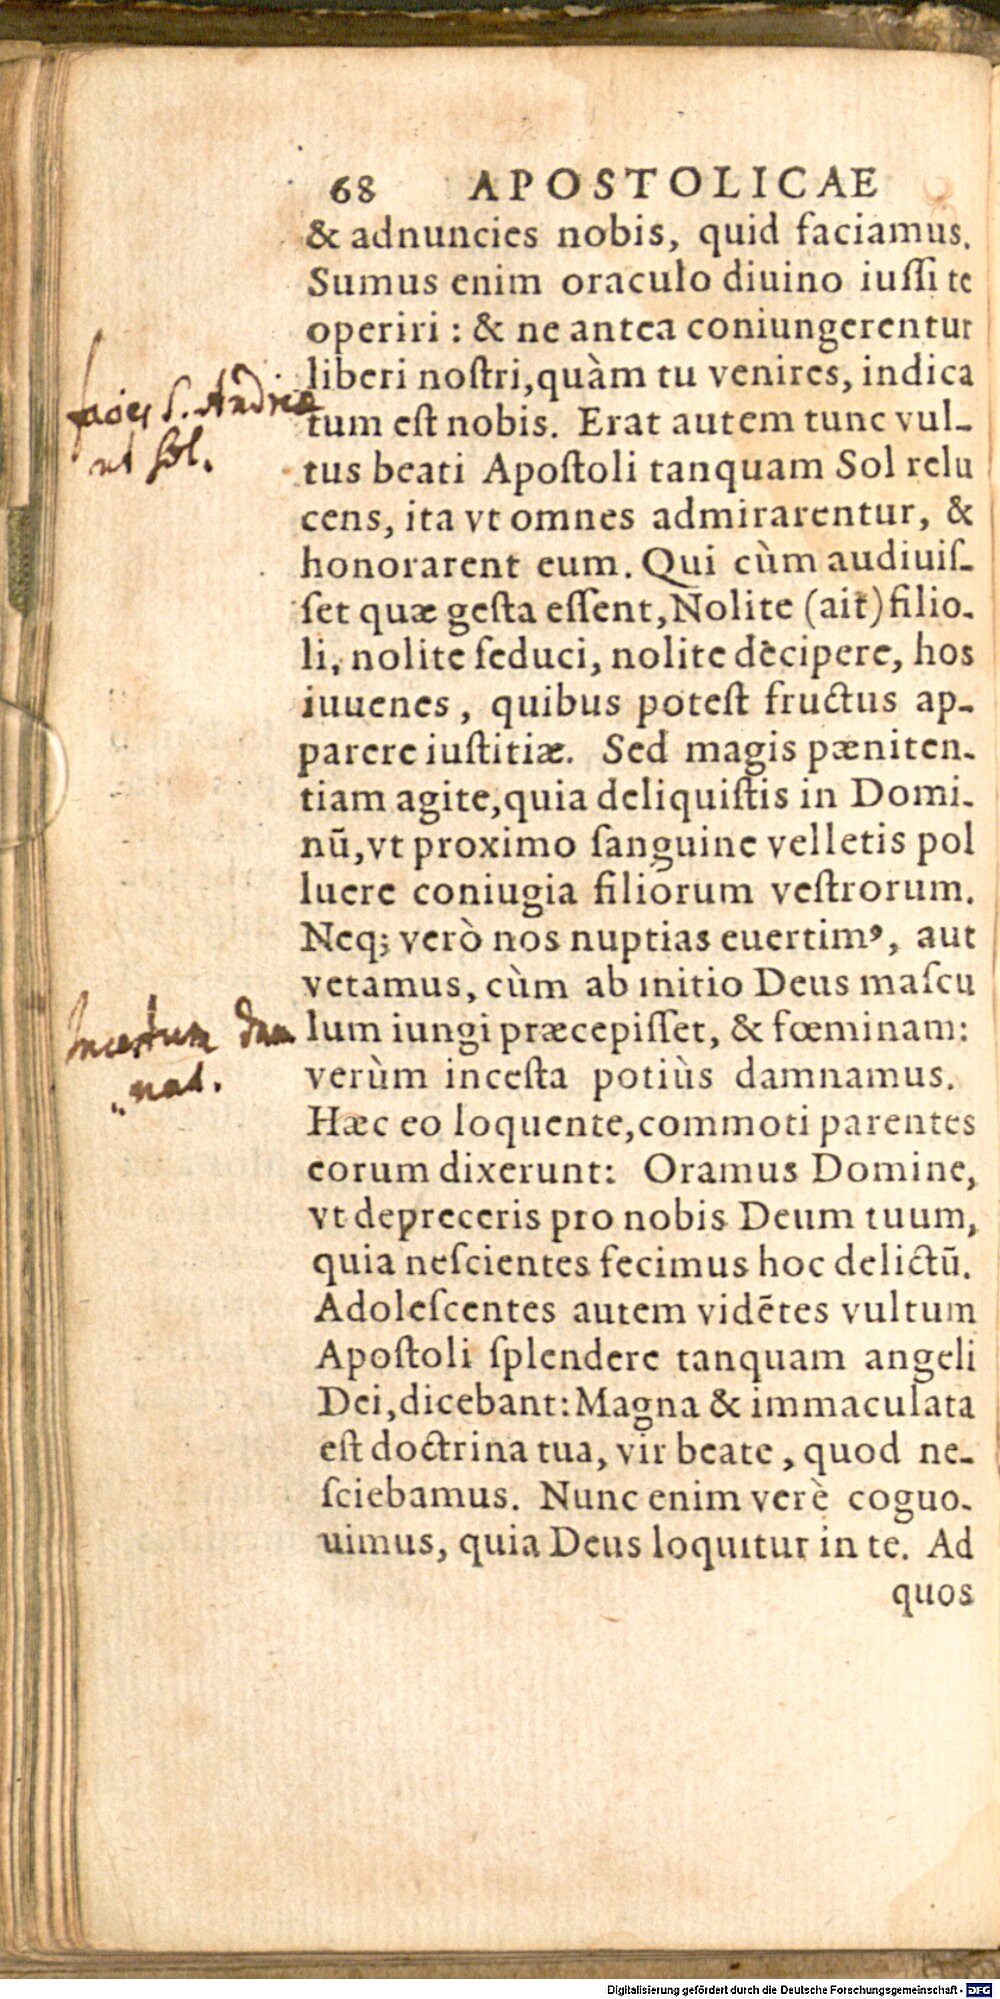 68 APOSTOLICAE
& adnuncies nobis, quid faciamus.
Sumus enim oraculo diuino iuſſi te
operiri : & ne antea coniungerentur
liberi noſtri,quàm tu venires, indica
tum eſt nobis. Erat autem tunc vul-
tus beati Apoſtoli tanquam Sol relu
cens, ita vt omnes admirarentur, &
honorarent eum. Qui cùm audiuiſ-
ſet quæ geſta eſſent, Nolite (ait) filio-
li, nolite ſeduci, nolite dècipere, hos
iuuenes, quibus poteſt fructus ap-
parere iuſtitiæ. Sed magis pæniten-
tiam agite,quia deliquiſtis in Domi-
nū,vt proximo ſanguine velletis pol
luere coniugia filiorum veſtrorum.
Neq; verò nos nuptias euertimꝰ, aut
vetamus, cùm ab initio Deus maſcu
lum iungi præcepiſſet, & fœminam:
verùm inceſta potiùs damnamus.
Hæc eo loquente,commoti parentes
eorum dixerunt: Oramus Domine,
vt depreceris pro nobis Deum tuum,
quia neſcientes fecimus hoc delictū.
Adoleſcentes autem vidētes vultum
Apoſtoli ſplendere tanquam angeli
Dei,dicebant:Magna & immaculata
eſt doctrina tua, vir beate, quod ne-
ſciebamus. Nunc enim verè coguo-
uimus, quia Deus loquitur in te. Ad
quos
facies S. Andreæ
ut sol.
dam
nat.
Digitalisierung gefördert durch die Deutsche Forschungsgemeinschaft - DFG